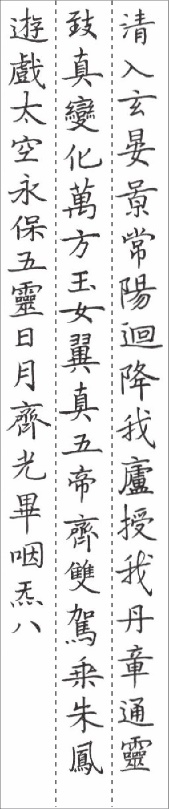 清入玄晏景常陽迴降我廬授我丹章通靈
致真變化萬方玉女翼真五帝齊雙駕乘朱鳳
遊戲太空永保五靈日月齊光畢咽炁八